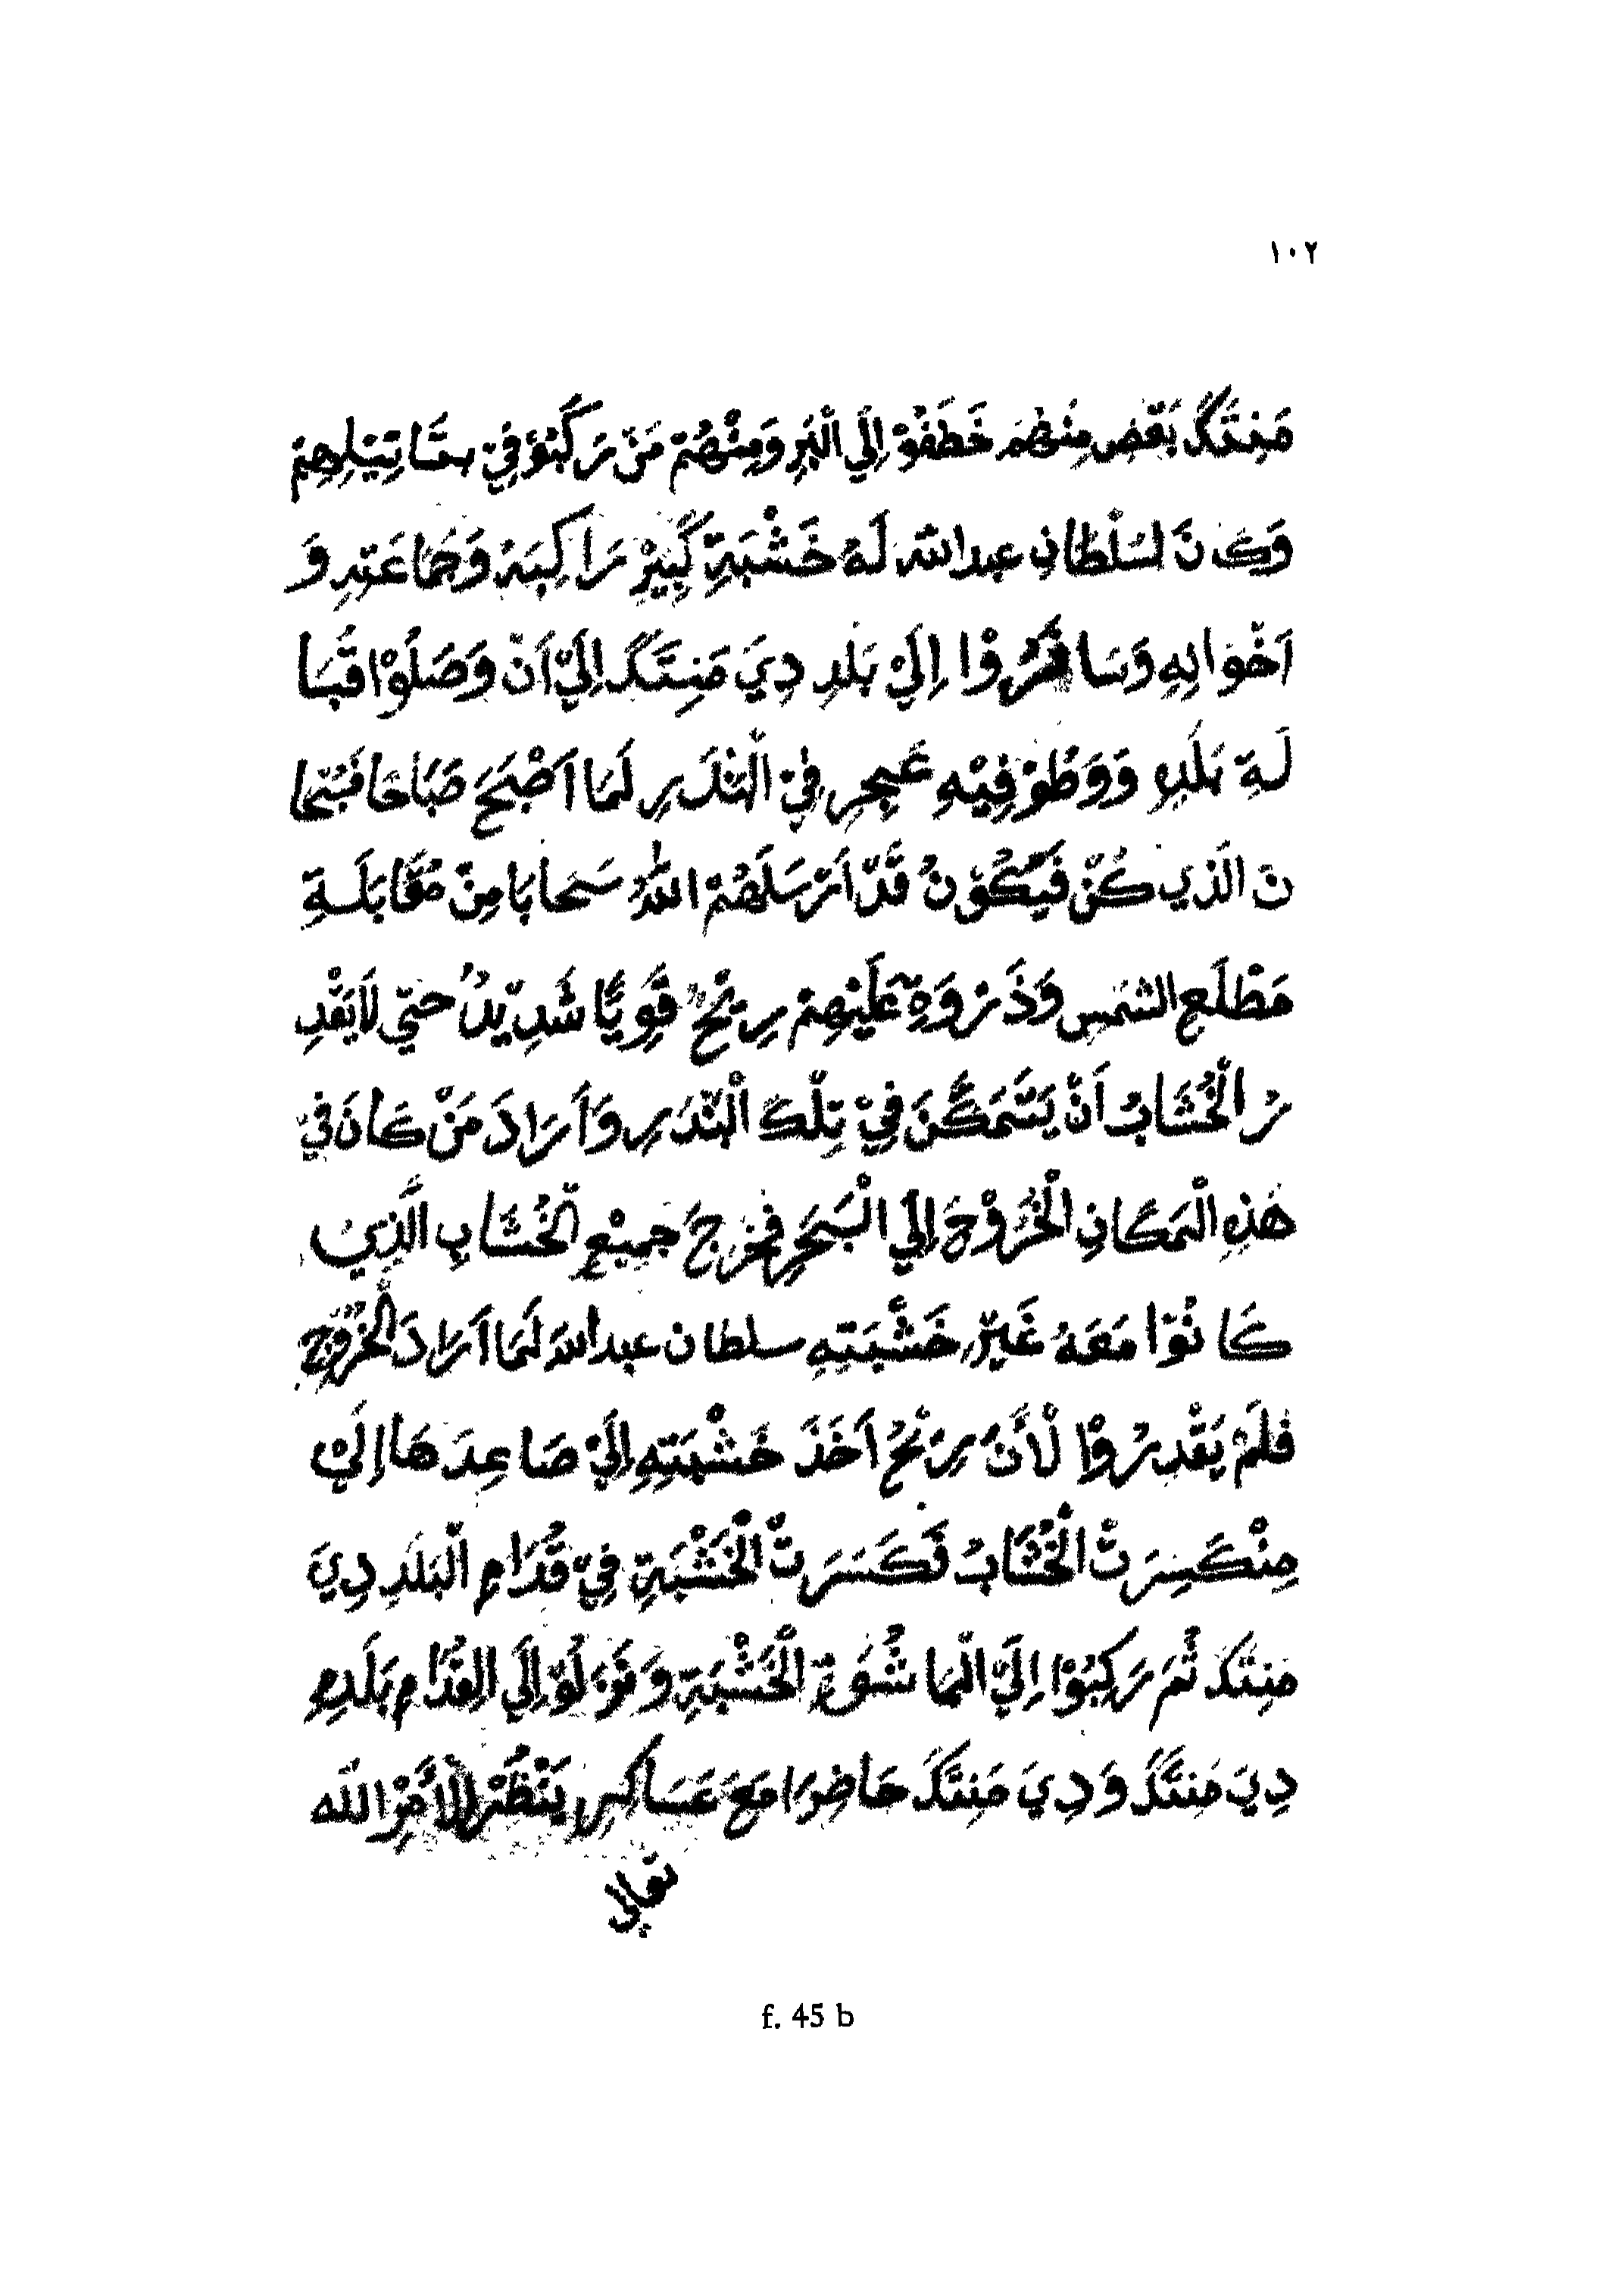 ١٠٢
مَنِتَكَ بَعْضِ مِنْهُمْ خَطَفُوْ اِلَي الْبَرِ وَمِنْهُمْ مَنْ رَكَبُوْ فِيْ بتَاتِيْلِهِمْ
وَكَانَ لسُلْطَانِ عبدالله لَهُ خَشْبَةِ كَبِيْرِ رَاكِبَهُ وَجَمَاعَتِهِ وَ
اَخْوَانِهِ وَسَافَرُوْا اِلَيْ بَلَدِ دِيَ مَنِتَكَ اِلَيْ اَنْ وَصَلُوْا قُبَا
لَةِ بَلَدِ وَوَطُوْ فِيْهِ عَجِرِ فِيْ الْبَنْدَرِ لَمَا اَصْبَحَ صَبَاحًا فَبَتِحا
نَ الَذِي كُنْ فَيَكُوْنُ قَدْ اَرْسَلَهُمْ اللهُ سَحابًا مِنْ مُقَابَلَةِ
مَطْلَعِ الشمْسِ وَذَرْوَةِ عَلَيْهِمْ رِيْحٌ قَوِيًا شَدِيْدٌ حتي لَا يَقْدِ
رُ الْخُشَابُ اَنْ يَتَمَكَنَ فِيْ تِلْكَ الْبَنْدَرِ وَاَرَادَ مَنْ كَانَ فِيْ
هَذِهِ الْمَكَانِ الْخُرُوْجَ اِلَي الْبَحَرِ فخَرَجَ جَمِيْعِ الْخُشَابِ الَّذِيْ
كَانُوْا مَعَهُ غَيْرِ خَشْبَتِهِ سلطان عبدالله لَمَا اَرَادَ الْخُرُوْجِ
فلَمْ يَقْدِرُوْا لْأَنَ رِيْحُ اَخَذَ خَشْبَتِهِ اِلَيْ صَاعِدَهَا اِلَيْ
مِنْكَسِرَتْ الْخُشَابُ فَكَسَرَتْ الْخَشْبَةِ فِيْ قُدَامِ الْبَلَدِ دِيَ
مَنِتَكَ ثُمَ رَكِبُوْا اِلَيْ الْمَا شُوَةِ الْخَشْبَةِ وَنَزَلُوْ اِلَي القُدَامِ بَلَدِ
دِيَ مَنِتَكَ وَدِيَ مَنِتَكَ حَاضِرًا مَعَ عَسَاكِرِ يَنْظُرْ لِلأَمْرِ الله
تعالى
f. 45 b